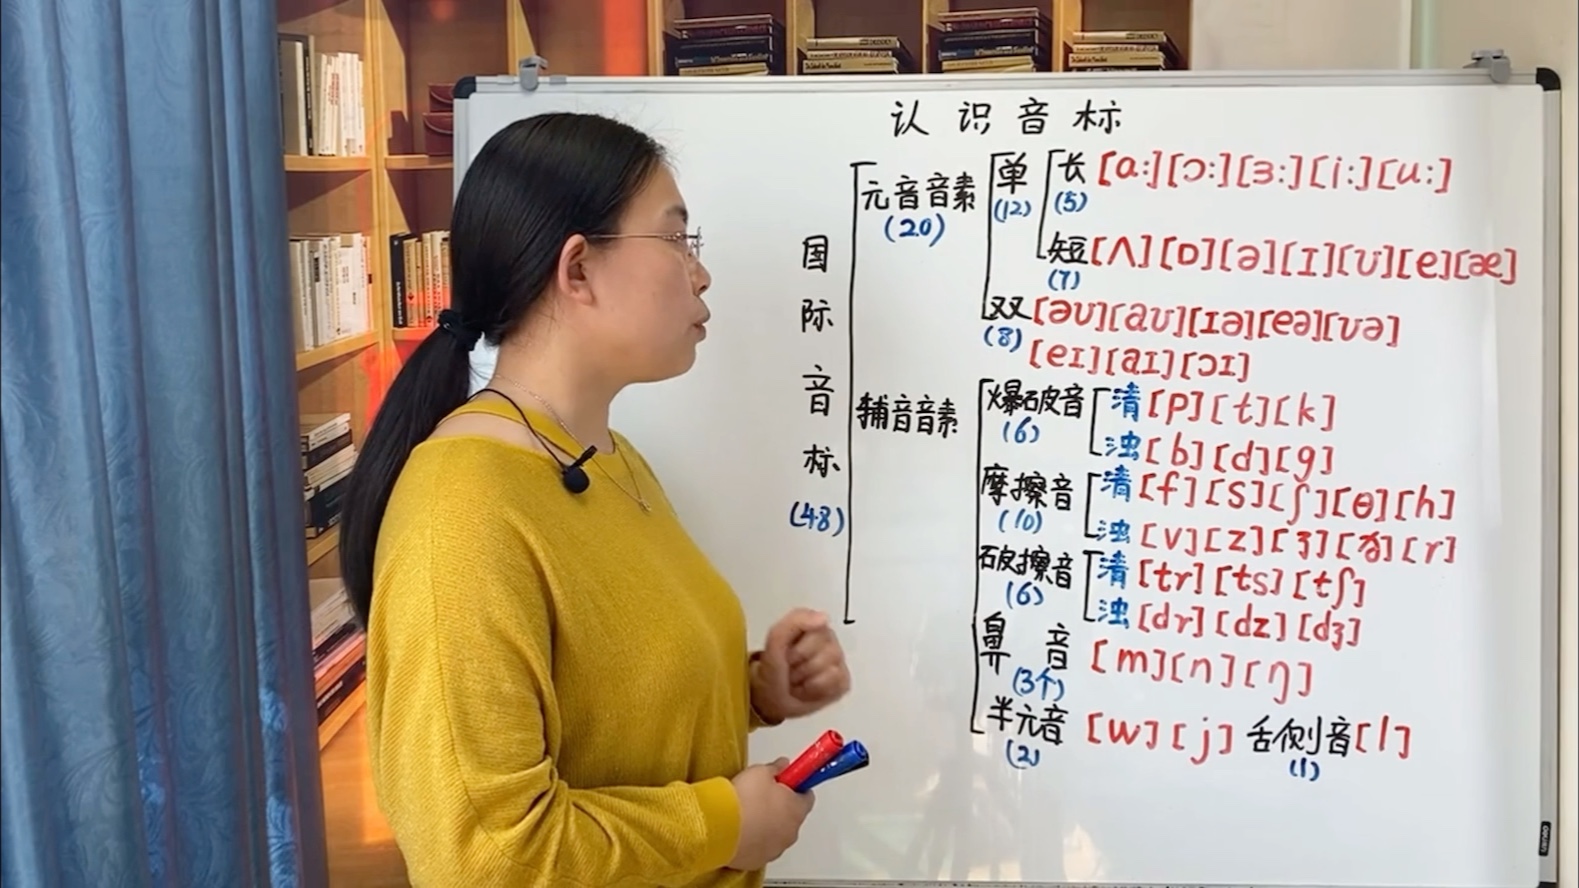 认识音标
国际音标
(48)
元音音素
(20)
单
(12)
长 [ɑ:][ɔ:][ɜ:][i:][u:]
(5)
短 [ʌ][ɒ][ə][ɪ][ʊ][e][æ]
(7)
双 [əʊ][aʊ][ɪə][eə][ʊə]
(8)
[eɪ][aɪ][ɔɪ]
辅音音素
爆破音
(6)
清 [p][t][k]
浊 [b][d][g]
摩擦音
(10)
清 [f][s][ʃ][θ][h]
浊 [v][z][ʒ][ð][r]
破擦音
(6)
清 [tr][ts][tʃ]
浊 [dr][dz][dʒ]
鼻音 [m][n][ŋ]
(3个)
半元音 [w][j] 舌侧音 [l]
(2) (1)